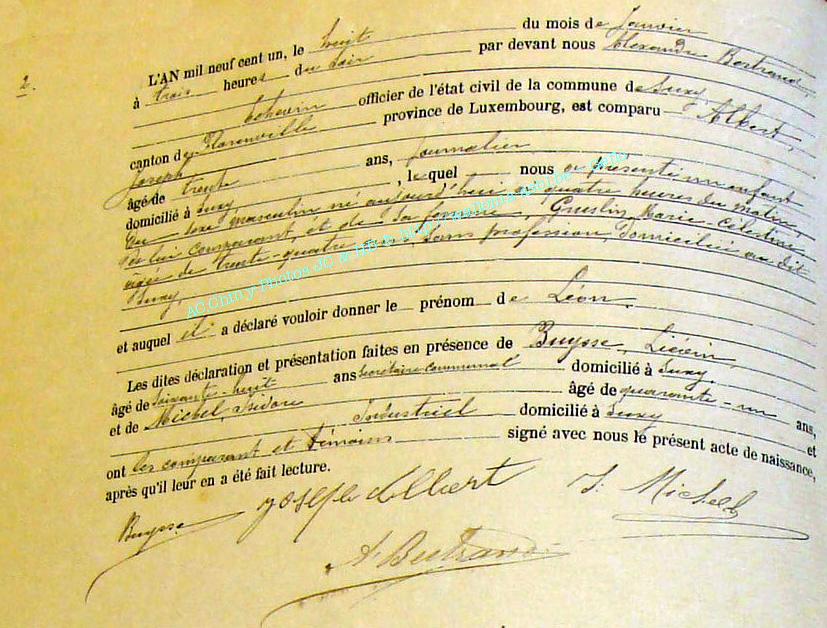 2.
L'AN mil neuf cent un, le huit du mois de Janvier
à trois heures du soir par devant nous Alexandre Bertrand,
Echevin officier de l'état civil de la commune de Suxy,
canton de Florenville province de Luxembourg, est comparu Albert,
Joseph,
âgé de trente ans, journalier
domicilié à Suxy lequel nous a présenté un enfant
du sexe masculin, né aujourd'hui à quatre heures du matin,
de lui comparant, et de sa femme Guslin, Marie-Célestine
âgée de trente-quatre ans, sans profession, domiciliée au dit
Suxy,
AC Chiny Photos JC &
et auquel il a déclaré vouloir donner le prénom de Léon.
Les dites déclaration et présentation faites en présence de Buysse,
âgé de soixante-huit ans secrétaire communal domicilié à Suxy.
et de Michel, Isidore âgé de quarante-un ans,
Industriel domicilié à Suxy et
ont les comparant et témoins signé avec nous le présent acte de naissance,
après qu'il leur en a été fait lecture.
Buysse Joseph Albert I. Michel
A Bertrand